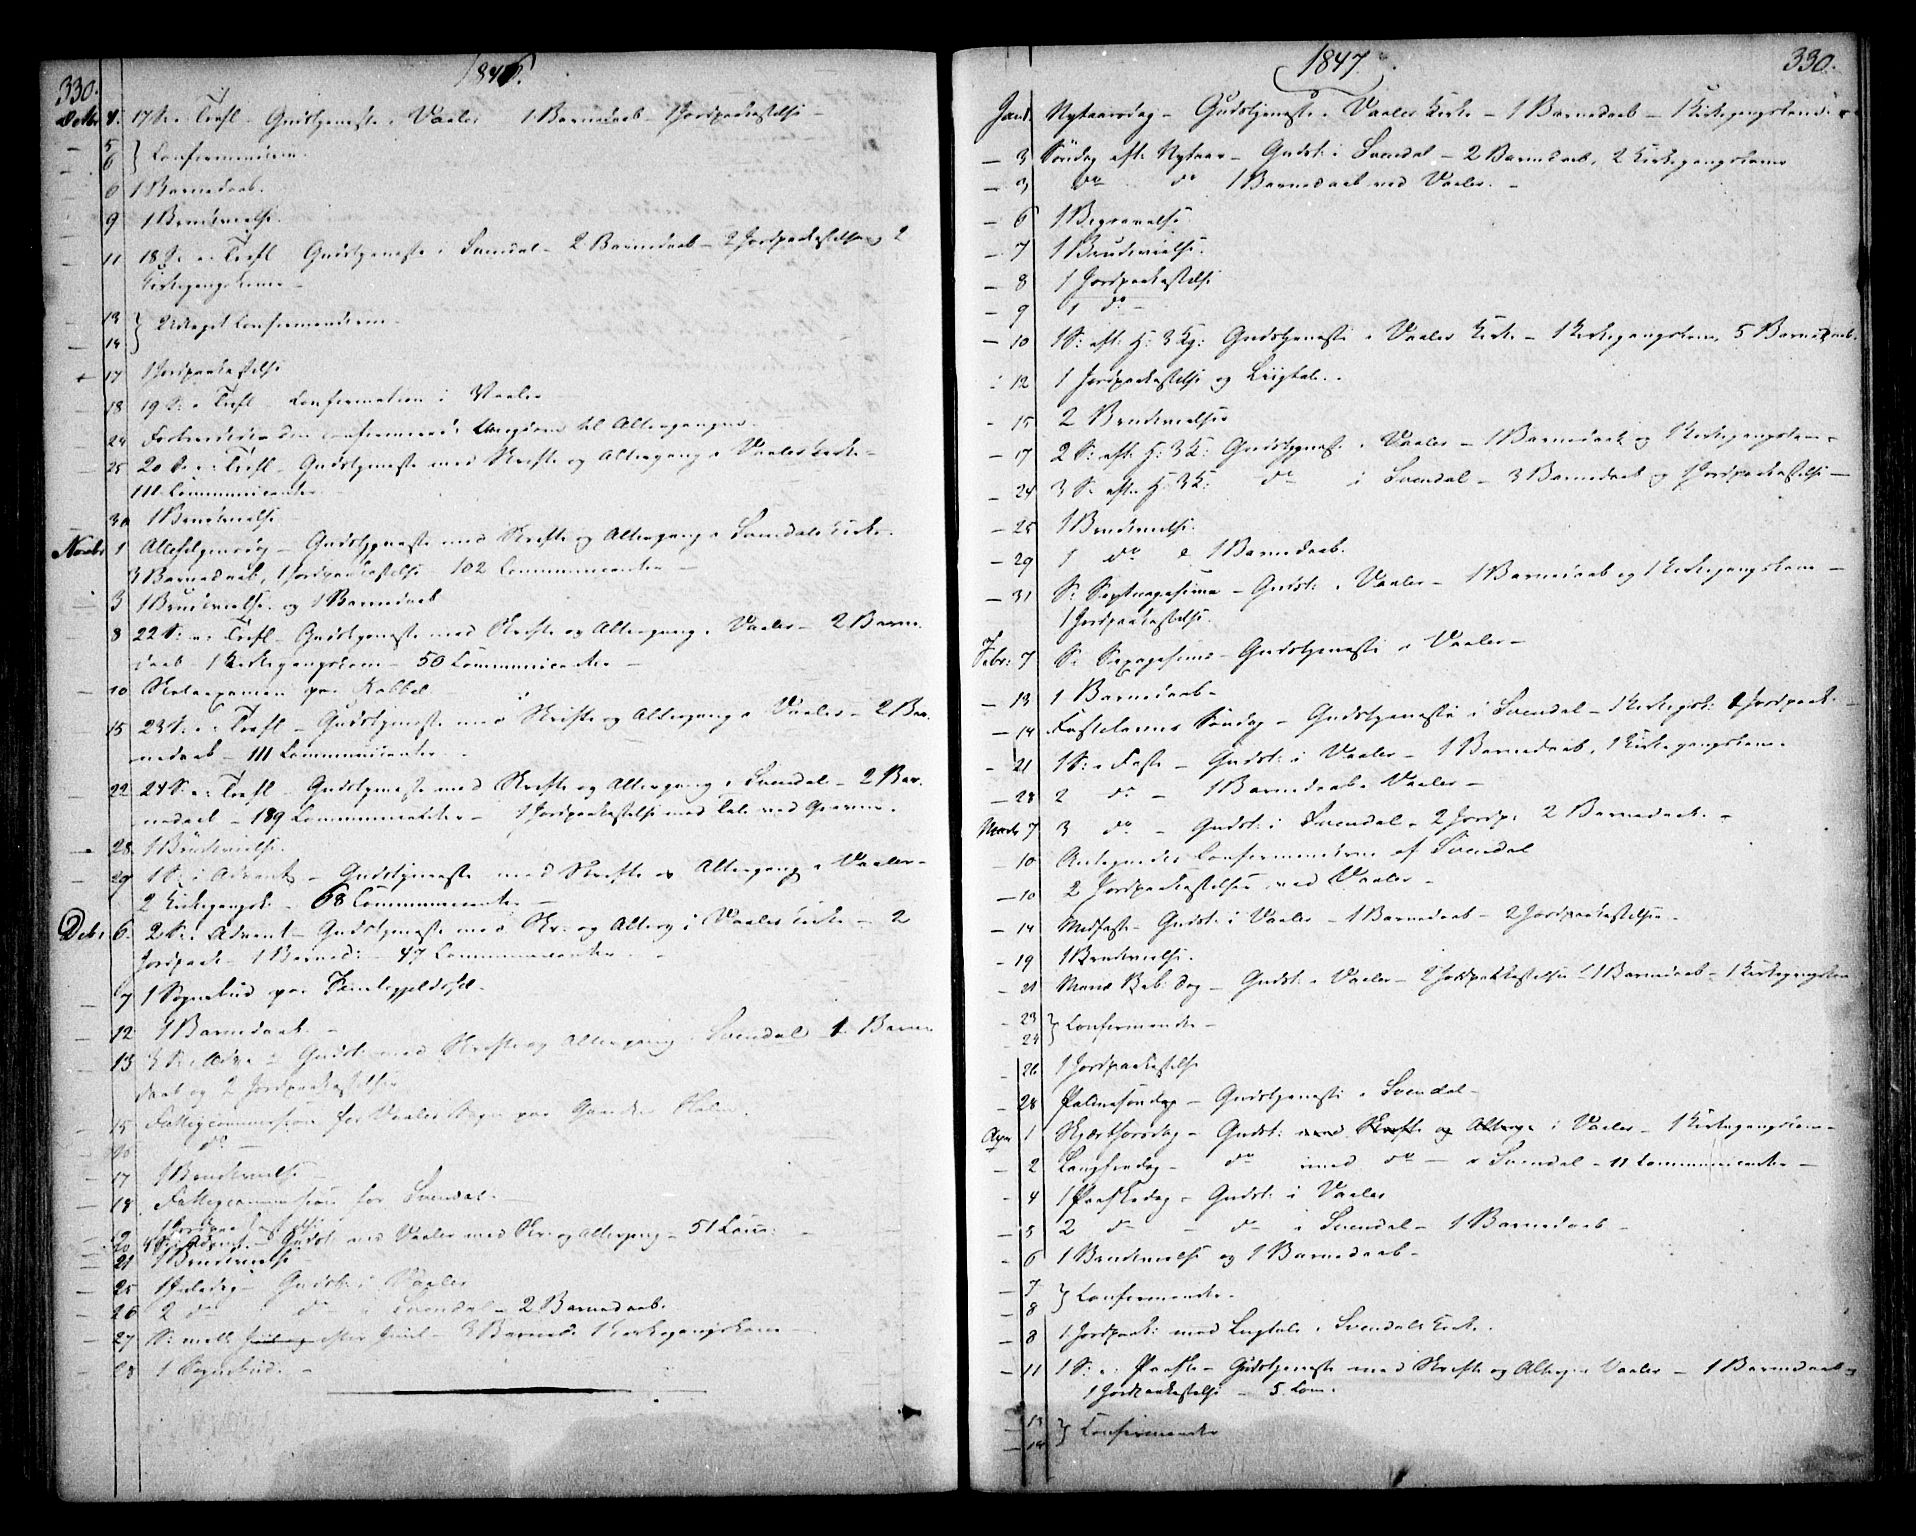 330.
1846.
Octbr 4. 17 S. e. Trefl. - Gudstjeneste i Vaaler 1 Barnedaab - 1 Jordpaakastelse -
- 5 } Confirmanderne
- 6
6 1 Barnedaab.
- 9 1 Brudevielse.
- 11 18 S. e. Trefl. Gudstjeneste i Svendal - 2 Barnedaab - 2 Jordpaakastelse og 2
Kirkegangskone -
- 13 } Confirmanderne -
- 14
17 1 Jordpaakastelse
- 18 19 S. e. Trefl - Confirmation i Vaaler
- 24 confirmerede Ungdom til Altergangen
- 25 20 S. e. Trefl - Gudstjeneste med Skrifte og Altergang i Vaaler Kirke -
111 Communicanter -
- 30 1 Brudevielse -
Novbr 1 Allehelgensdag - Gudstjeneste med Skrifte og Altergang i Svendals Kirke.
3 Barnedaab, 1 Jordpaakastelse - 102 Communicanter -
3 1 Brudevielse og 1 Barnedaab
- 8 22 S: e: Trefl - Gudstjeneste med Skrifte og Altergang i Vaaler - 2 Barne
daab - 1 Kirkegangskone - 50 Communicanter -
- 10 Skoleexamen paa
- 15 23 S. e. Trefl - Gudstjeneste med Skrifte og Altergang i Vaaler - 2 Bar
nedaab - 111 Communicanter -
- 22 24 S. e. Trefl - Gudstjeneste med Skrifte og Altergang i Svendal - 2 Bar
nedaab - 189 Communicanter - 1 Jordpaakastelse med Tale ved Graven.
28. 1 Brudevielse.
- 29 1 S. i Advent - Gudstjeneste med Skrifte og Altergang i Vaaler -
2 Kirkegangsk. - 68 Communicanter -
Debr 6. 2 S. i Advent - Gudstjeneste med Skr. og Alterg. i Vaaler Kirke - 2
Jordpaak - 1 Barned: - 47 Communicanter -
- 7 1 Sognebud paa
- 12 1 Barnedaab -
- 13 3 S. i Adv. - Gudst. med Skrifte og Altergang i Svendal 1 Barne
daab og 2 Jordpaakastelser
- 15 Fattigcommission for Vaaler Sogn paa
16 do -
- 17 1 Brudevielse -
- 18 Fattigcommission for Svendal. -
1 Jordpaakastelse
- 20 4 S. i Advent. - Gudst. ved Vaaler med Skr. og Altergang - 51 Com: -
- 21 1 Brudevielse
- 25 1 Juledag - Gudst. i Vaaler
- 26 2 do do i Svendal - 2 Barnedaab.
- 27 S. mell. Juul og efter Juul - 3 Barned. 1 Kirkegangskone -
- 28 1 Sognebud. -
1847.
330.
Janr. Nytaarsdag - Gudstjeneste i Vaaler Kirke - 1 Barnedaab - 1 Kirkegangskone
- 3 Søndag eft. Nytaar - Gudst. i Svendal - 2 Barnedaab, 2 Kirkegangskoner
- 3 do do 1 Barnedaab ved Vaaler. -
- 6 1 Begravelse
- 7 1 Brudevielse.
- 8 1 Jordpaakastelse
- 9 1 do -
- 10 1 S: eft. H: 3 Kg: Gudstjeneste i Vaaler Kirke - 1 Kirkegangskone, 5 Barnedaab.
12 1 Jordpaakastelse og Liigtale.
- 15 2 Brudevielser
- 17 2 S. eft. H: 3 K: Gudstjeneste i Vaaler - 1 Barnedaab og 1 Kirkegangskone -
- 24 3 S. eft. H: 3 K: do i Svendal - 3 Barnedaab og 1 Jordpaakastelse -
- 25 1 Brudevielse.
- 29 1 do & 1 Barnedaab.
- 31 S: Septuagesima - Gudst: i Vaaler - 1 Barnedaab og 1 Kirkegangskone -
1 Jordpaakastelse.
Febr: 7 S: Sexagesima - Gudstjeneste i Vaaler -
- 13 1 Barnedaab -
- 14 Fastelavns Søndag - Gudstjeneste i Svendal - 1 Kirkegsk: 1 Jordpaak. -
- 21 1 S. i Faste - Gudst: i Vaaler - 1 Barnedaab, 1 Kirkegangskone.
- 28 2 do - 1 Barnedaab i Vaaler -
Marts 7 3 do - Gudst: i Svendal - 2 Jordp. 2 Barnedaab. -
- 10 Antegnedes Confirmanderne af Svendal
- 10 2 Jordpaakastelser ved Vaaler -
- 14 Midfaste - Gudst: i Vaaler - 1 Barnedaab - 2 Jordpaakastelser. -
- 19 1 Brudevielse.
- 21 Mariæ Beb: Dag - Gudst. i Vaaler - 2 Jordpaakastelser 1 Barnedaab - 1 Kirkegangskone
- 23 } Confirmander -
- 24
- 26 1 Jordpaakastelse
- 28 Palmesøndag - Gudstjeneste i Svendal -
Apr 1 Skjærthorsdag - Gudst: med Skrifte og Alterg. i Vaaler - 1 Kirkegangskone -
- 2 Langfredag - do med do - i Svendal - 11 Communicanter -
- 4 1 Paaskedag - Gudst: i Vaaler
- 5 2 do - do i Svendal - 1 Barnedaab -
- 6 1 Brudevielse og 1 Barnedaab -
- 7 } Confirmander -
- 8
- 8 1 Jordpaak: med Liigtale i Svendals Kirke.
- 11 1 S. e. Paaske - Gudstjeneste med Skrifte og Alterg. i Vaaler - 1 Barnedaab og
1 Jordpaakastelse - 5 Com.
- 13 } Confirmander
- 14